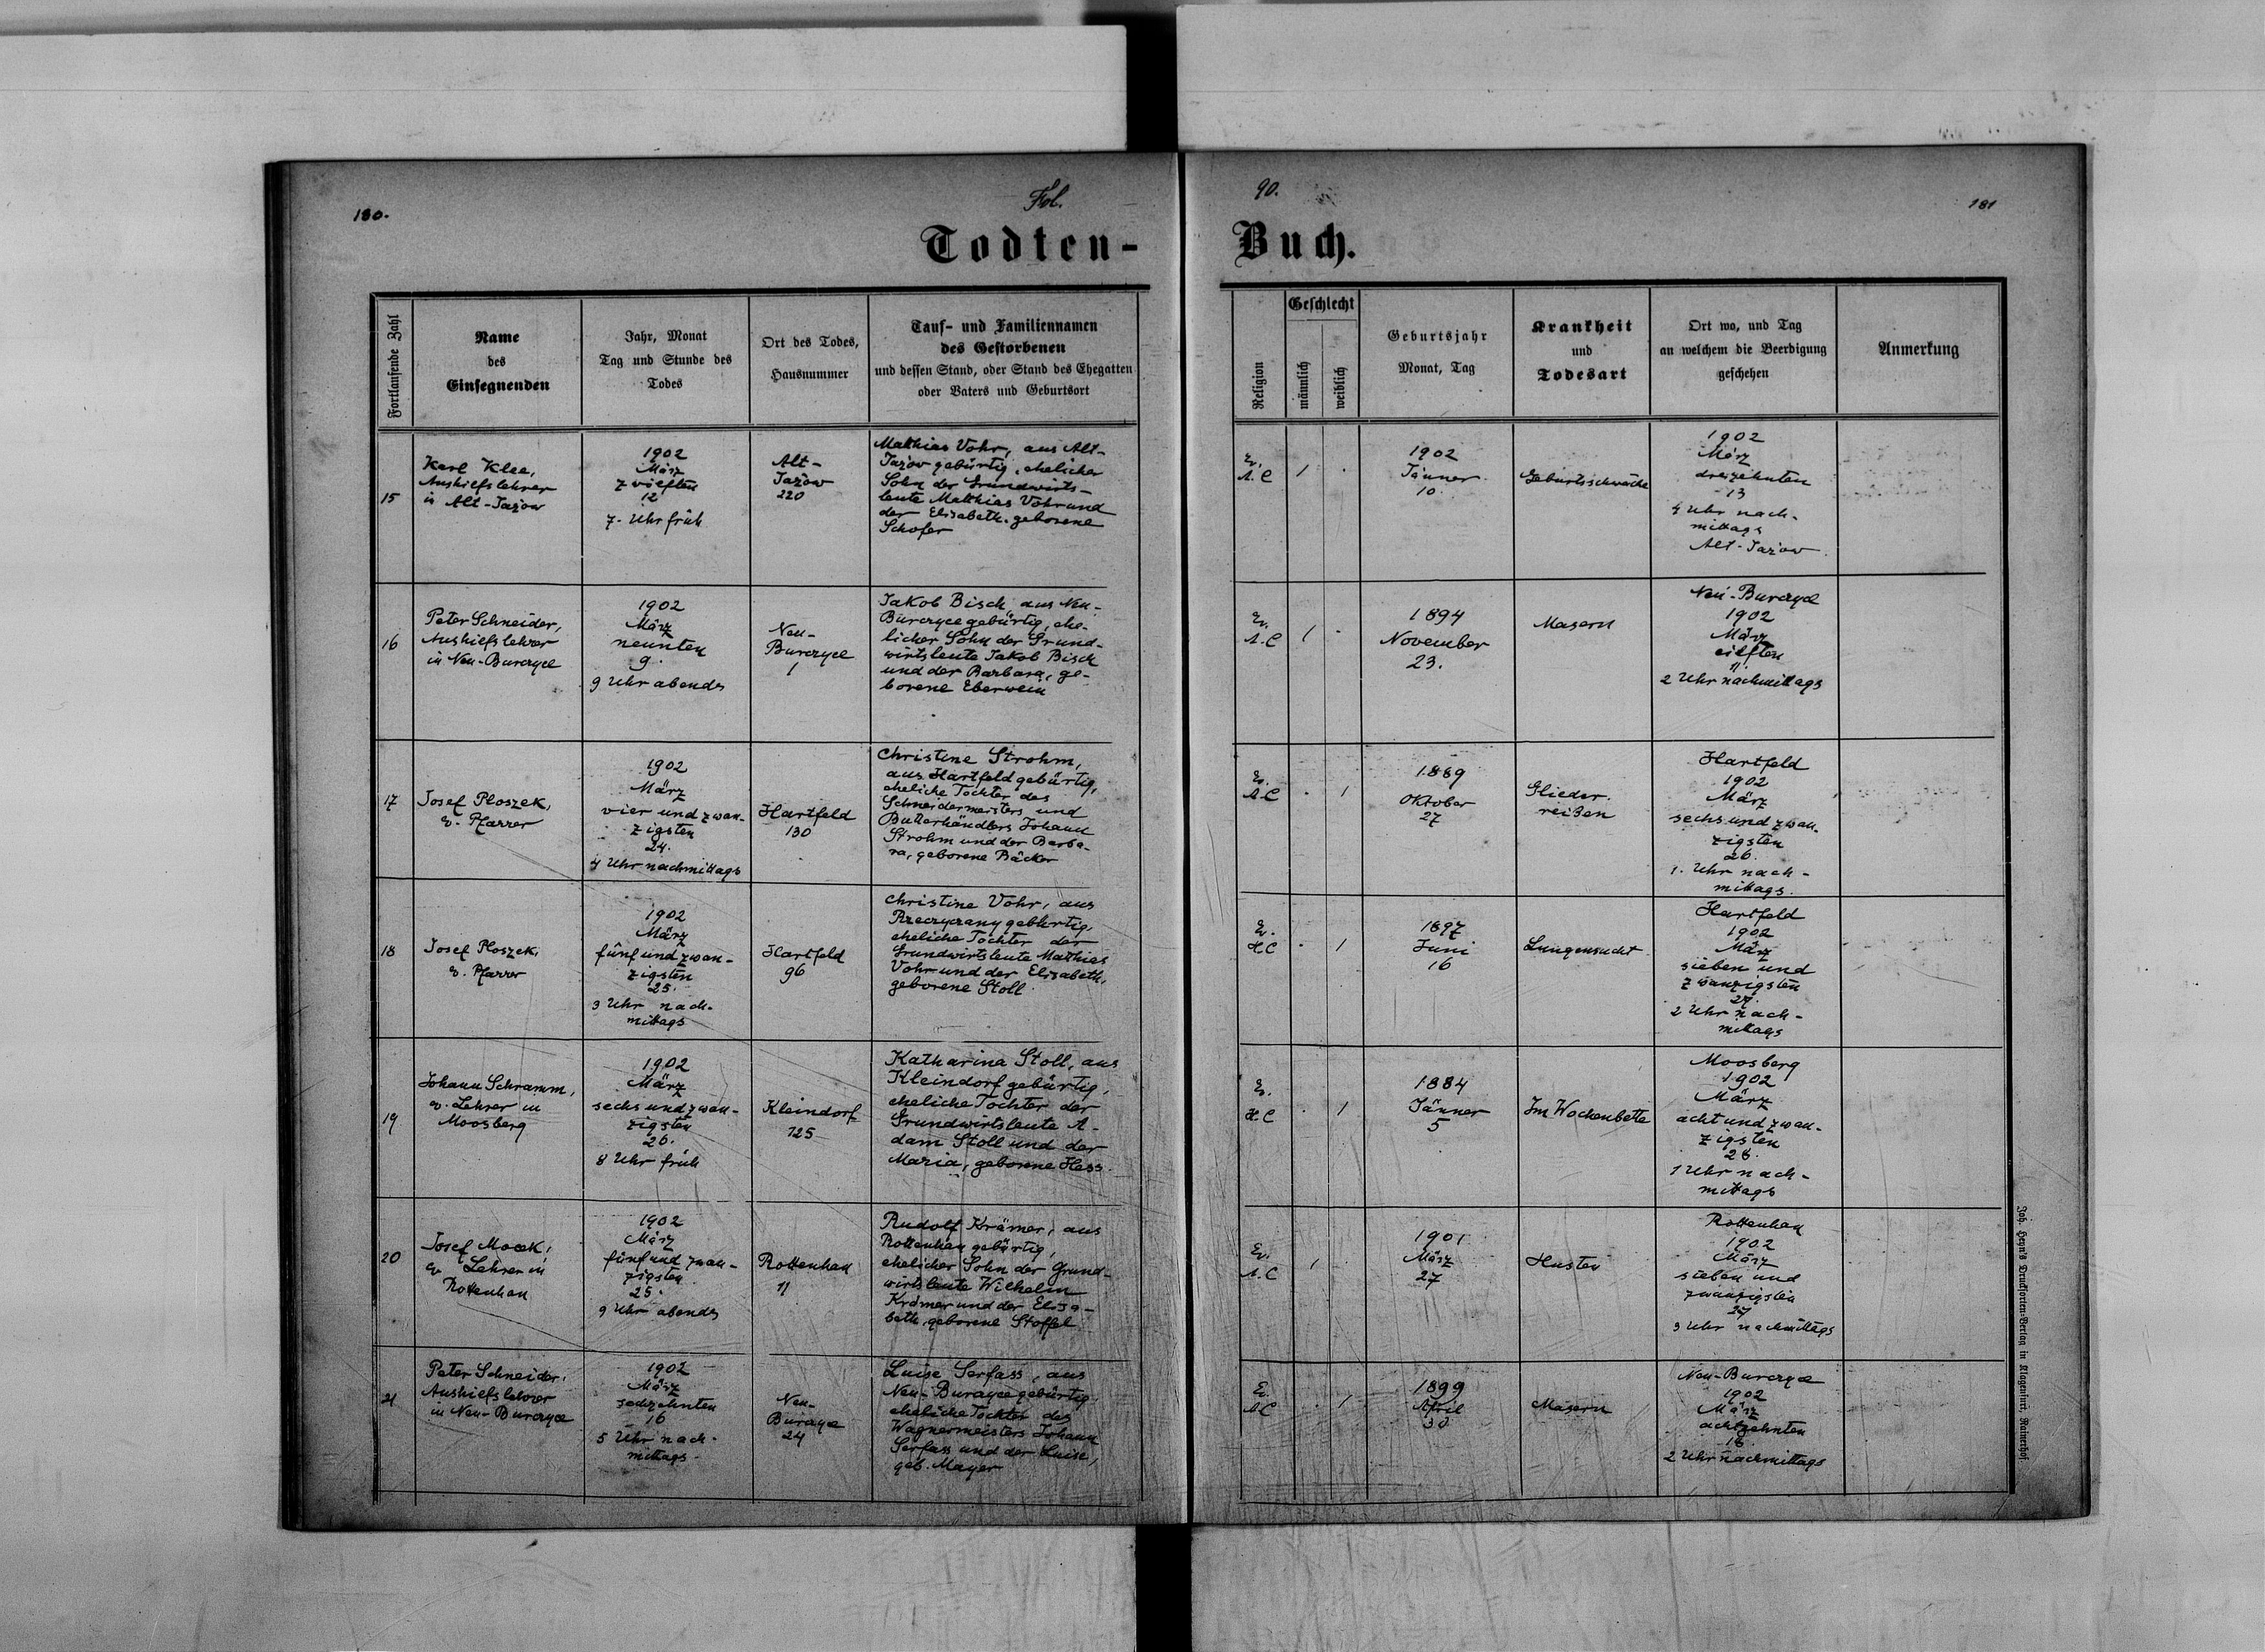 180.
Fol.
90.
181
Todten-
Buch.
Fortlaufende Zahl
Name
des
Einsegnenden
Jahr, Monat
Tag und Stunde des
Todes
Ort des Todes,
Hausnummer
Tauf- und Familiennamen
des Gestorbenen
und dessen Stand, oder Stand des Ehegatten
oder Vaters und Geburtsort
Religion
Geschlecht
männlich
weiblich
Geburtsjahr
Monat, Tag
Krankheit
und
Todesart
Ort wo, und Tag
an welchem die Beerdigung
geschehen
Anmerkung
15
Karl Klee,
Aushilfslehrer
in Alt-Jażow
1902
März
zwölften
12
7. Uhr früh
Alt-
Jażow
220
Matthias Vohr, aus Alt-
Jażow gebürtig, ehelicher
Sohn der Grundwirts-
leute Matthias Vohr und
der Elisabeth, geborene
Schofer
Ev.
A.C
1
1902
Jänner
10.
Geburtsschwäche
1902
März
dreizehnten
13
4 Uhr nach-
mittags
Alt-Jażow
16
Peter Schneider,
Aushilfslehrer
in Neu-Burczyce
1902
März
neunten
9.
9 Uhr abends
Neu-
Burczyce
1
Jakob Bisch, aus Neu-
Burczyce gebürtig, ehe-
licher Sohn der Grund-
wirtsleute Jakob Bisch
und der Barbara, ge-
borene Eberwein
Ev.
A.C
1
1894
November
23.
Masern
Neu-Burczyce
1902
März
eilften
11.
2 Uhr nachmittags
17
Josef Ploszek,
ev. Pfarrer
1902
März
vier und zwan-
zigsten
24.
4 Uhr nachmittags
Hartfeld
130
Christine Strohm,
aus Hartfeld gebürtig,
eheliche Tochter des
Schneidermeisters und
Butterhändlers Johann
Strohm und der Barba-
ra, geborene Bäcker
Ev.
A.C
1
1889
Oktober
27
Glieder-
reißen
Hartfeld
1902
März
sechs und zwan-
zigsten
26.
1. Uhr nach-
mittags.
18
Josef Ploszek,
ev. Pfarrer
1902
März
fünf und zwan-
zigsten
25.
3 Uhr nach-
mittags
Hartfeld
96
Christine Vohr, aus
Rzeczyczany gebürtig,
eheliche Tochter der
Grundwirtsleute Mathias
Vohr und der Elisabeth,
geborene Stoll
Ev.
H.C
1
1897
Juni
16
Lungensucht
Hartfeld
1902
März
sieben und
zwanzigsten
27.
2 Uhr nach-
mittags
19
Johann Schramm,
ev. Lehrer in
Moosberg
1902
März
sechs und zwan-
zigsten
26.
8 Uhr früh
Kleindorf
125
Katharina Stoll, aus
Kleindorf gebürtig,
eheliche Tochter der
Grundwirtsleute A-
dam Stoll und der
Maria, geborene Hess.
Ev.
H.C
1
1884
Jänner
5
Im Wochenbette
Moosberg
1902
März
acht und zwan-
zigsten
28.
1 Uhr nach-
mittags
20
Josef Mocek,
ev. Lehrer in
Rottenhan
1902
März
fünf und zwan-
zigsten
25.
9 Uhr abends
Rottenhan
11
Rudolf Krämer, aus
Rottenhan gebürtig,
ehelicher Sohn der Grund-
wirtsleute Wilhelm
Krämer und der Elisa-
beth, geborene Stoffel
Ev.
A.C
1
1901
März
27
Husten
Rottenhan
1902
März
sieben und
zwanzigsten
27
3 Uhr nachmittags
21
Peter Schneider,
Aushilfslehrer
in Neu-Burczyce
1902
März
sechzehnten
16
5 Uhr nach-
mittags.
Neu-
Burczyce
24
Luise Serfass, aus
Neu-Burczyce gebürtig
eheliche Tochter des
Wagnermeisters Johann
Serfass und der Luise,
geb. Mayer
Ev.
A.C
1
1899
April
30
Masern
Neu-Burczyce
1902
März
achtzehnten
18.
2 Uhr nachmittags
Joh. Heyn's Drucksorten-Verlag in Klagenfurt, Rainerhof.